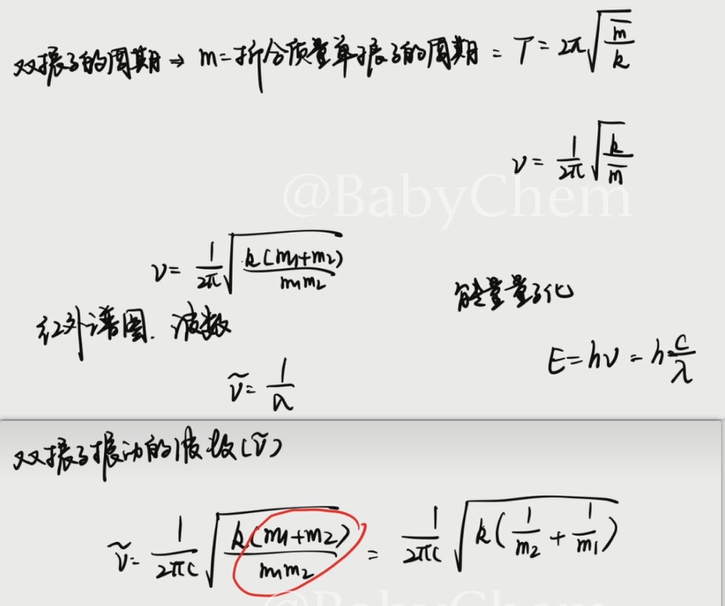 双振子的周期 ⇒ m=折合质量单振子的周期 = T = 2π√(m̅/k)
ν = 1/2π √(k/m̅)
@BabyChem
ν = 1/2π √(k(m1+m2)/m1m2)
能量量子化
红外谱图. 波数
E = hν = h·c/λ
ṽ = 1/λ
双振子振动的波数(ṽ)
ṽ = 1/2πc √(k(m1+m2)/m1m2) = 1/2πc √(k(1/m2 + 1/m1))
@BabyChem